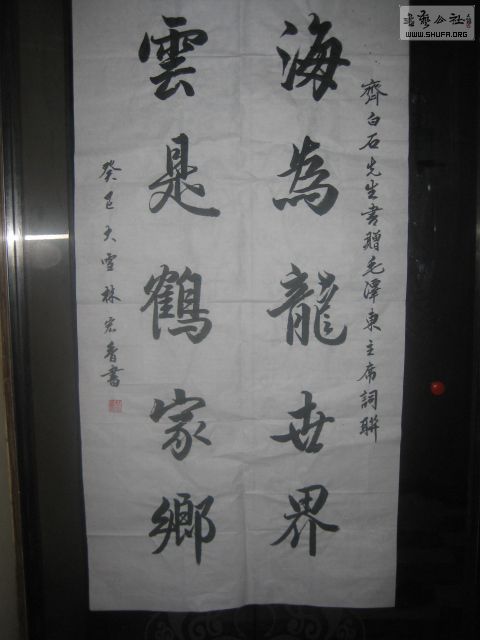 齊白石先生書贈毛澤東主席詞聯
海為龍世界
雲是鶴家鄉
癸巳大雪林宏香書
書藝公社
WWW.SHUFA.ORG